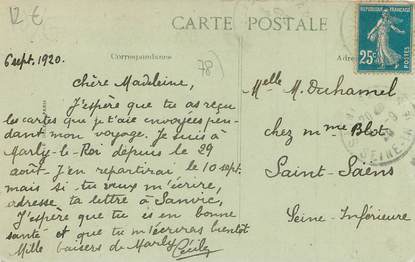 12 €
CARTE POSTALE
RÉPUBLIQUE FRANÇAISE
25c
POSTES
6 sept. 1920.
Correspondance
78)
Chère Madeleine,
J'espère que tu as reçu
les cartes que je t'aie envoyées pen-
dant mon voyage. Je suis à
Marly-le-Roi depuis le 29
août. J'en repartirai le 10 sept.
mais si tu veux m'écrire,
adresse ta lettre à Sanvic.
J'espère que tu es en bonne
santé et que tu m'écriras bientôt
Mille baisers de Marly Cécile
Melle M. Duhamel
chez mme Blot
Saint-Saens
Seine-Inférieure